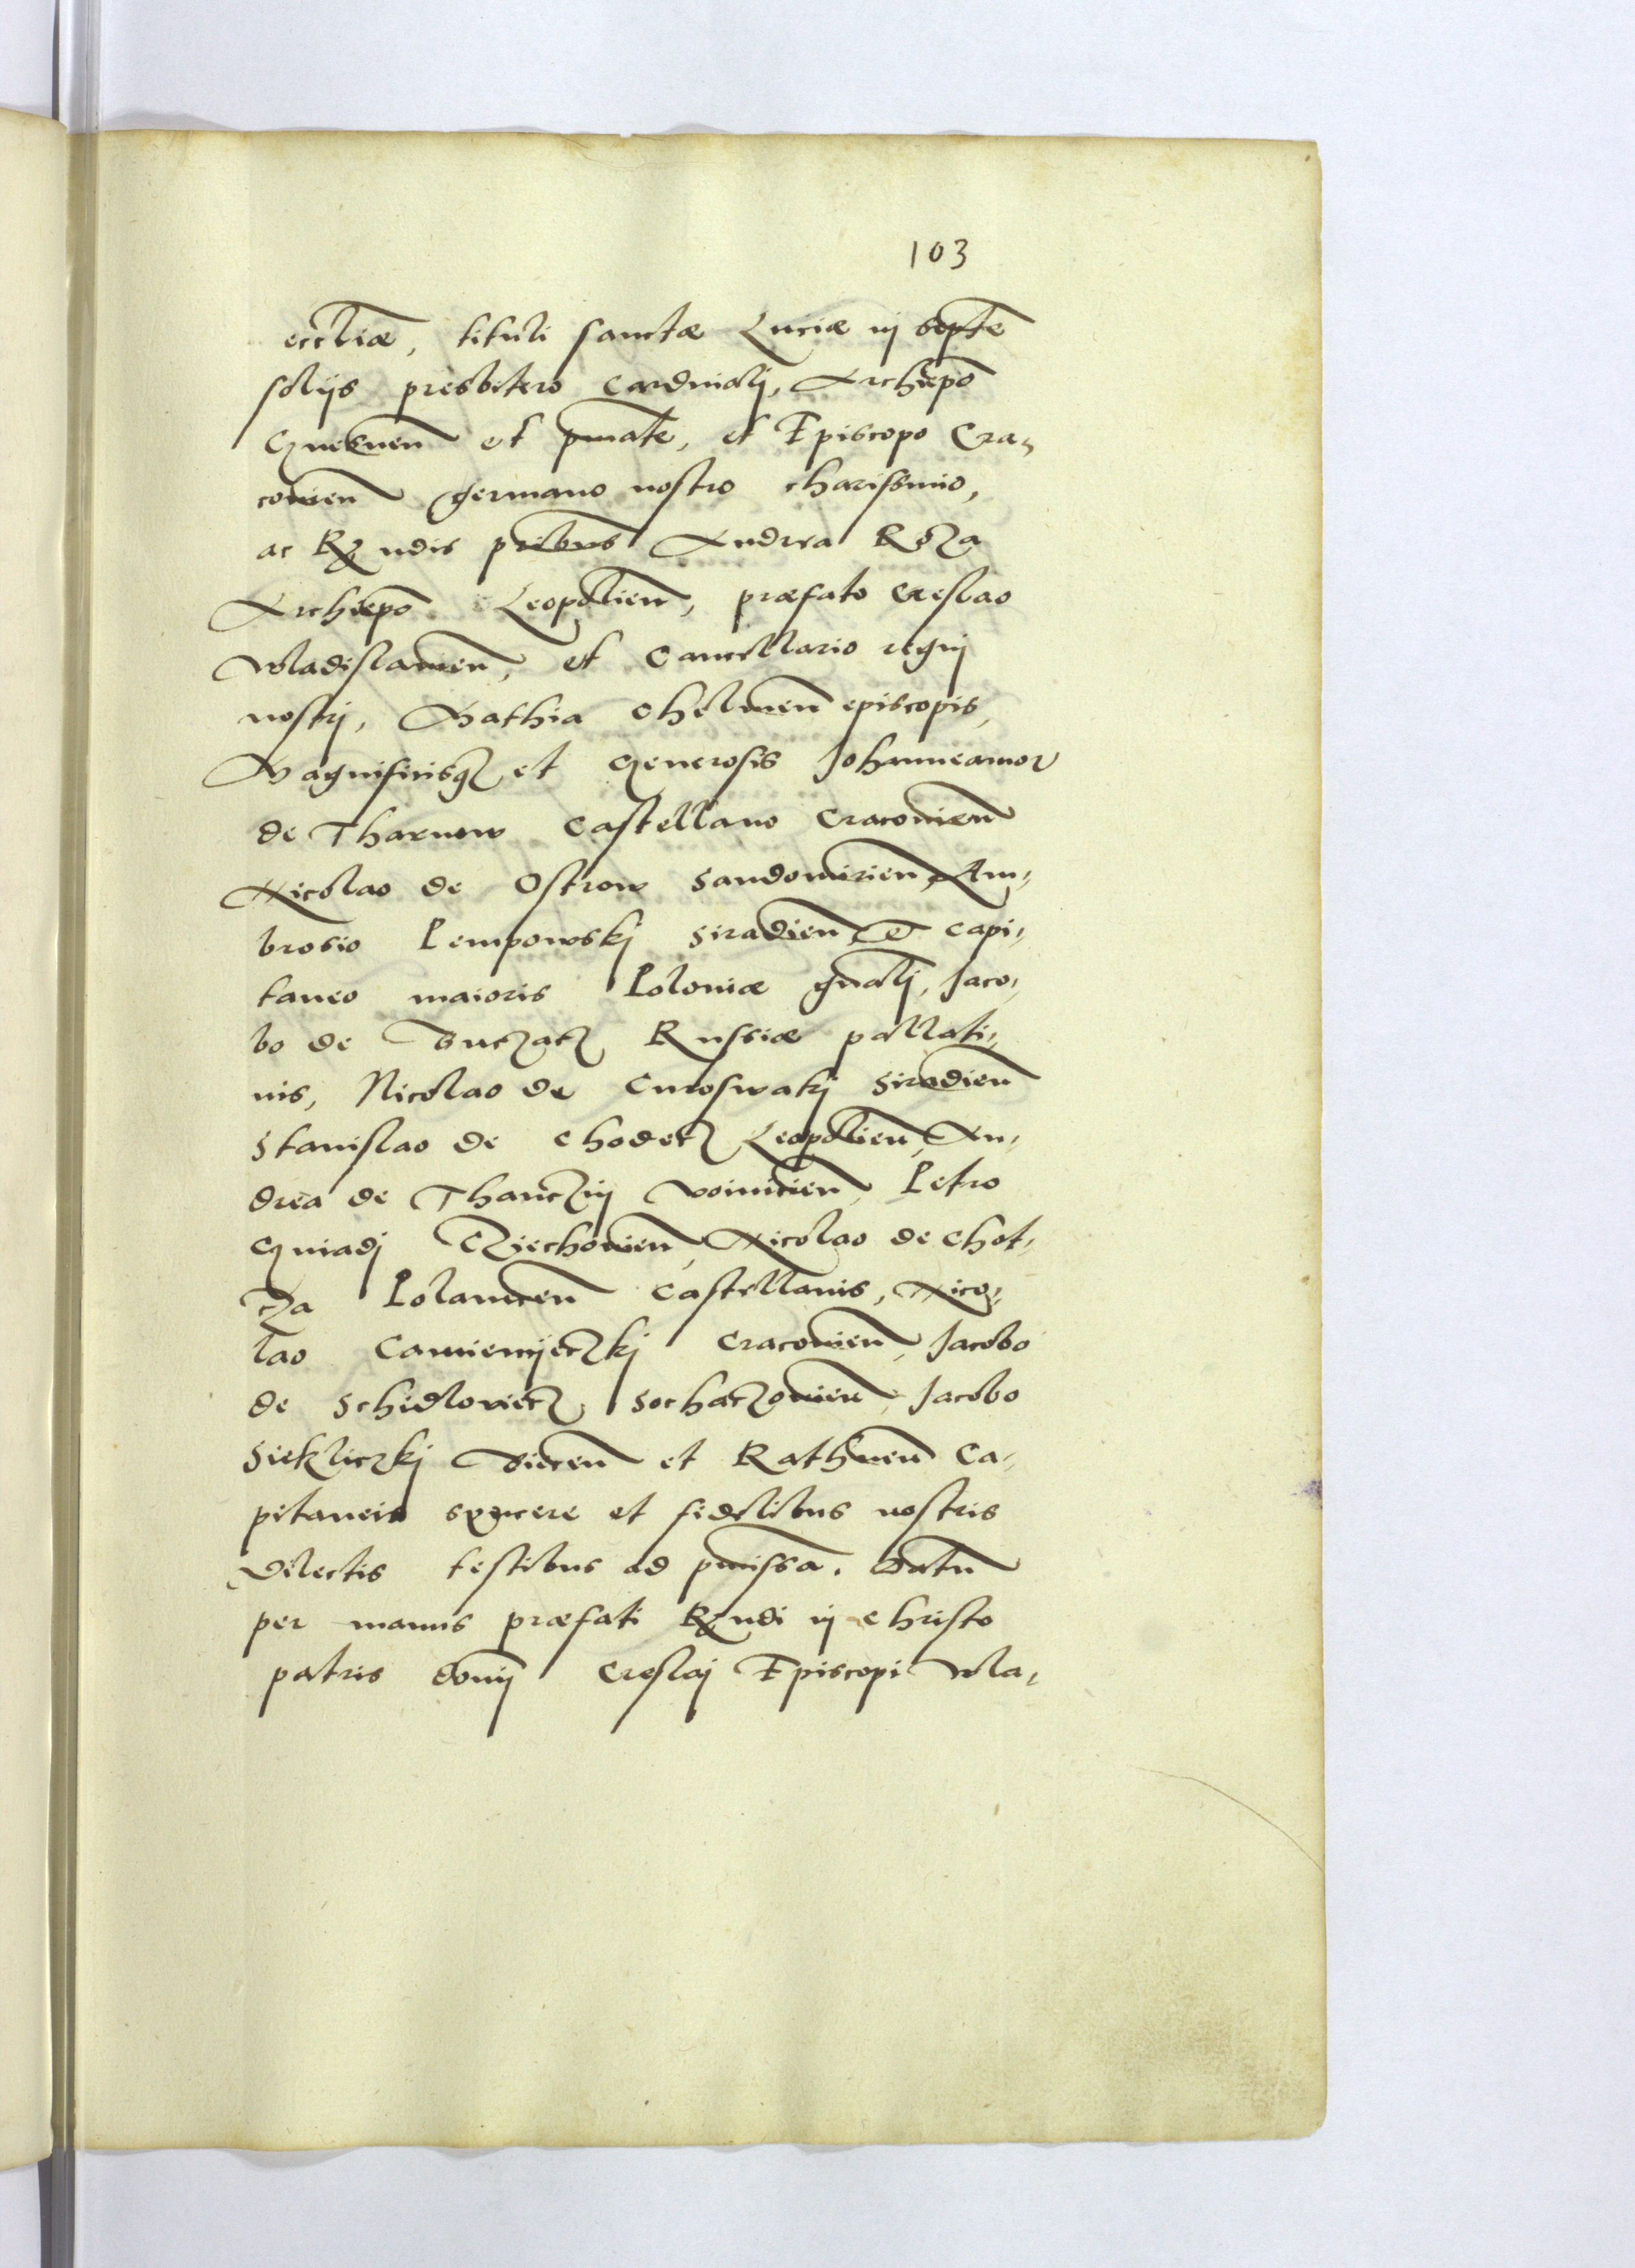 103
eccliæ, tituli sanctæ Luciæ in septe
soliis presbitero Cardinali, Archiepo
Gnesnen et pmate, et Episcopo Cra,
covien germano nostro charissimo,
ac Rendis pribus Andrea Roza
Archiepo Leopolien, præfato Creslao
Wladislavien, et Cancellario regni
nostri, Mathia Chelmen episcopis,
Magnificisqz et Generosis Johanne amor
de Tharnow Castellano Cracovien
Nicolao de Ostrow Sandomirien, Am,
brosio Pempowskj Siradien et Capi,
taneo maioris Poloniæ gnali, Jaco,
bo de Buczacz Russiæ pallati,
nis, Nicolao de Curoswakj Siradien
Stanislao de Chodecz Leopolien, An,
drea de Thanczin Woinicien, Petro
Gniadj Cziechovien, Nicolao de Chot,
cza Polanecen Castellanis, Nico,
lao Camienijeczkj Cracovien, Jacobo
de Schidloviecz Sochaczovien, Jacobo
Siekliczkj Biecen et Rathnen Ca,
pitaneis syncere et fidelibus nostris
dilectis testibus ad pmissa. Datu
per manus præfati Rendi in Christo
patris domi Creslaj Episcopi Wla,